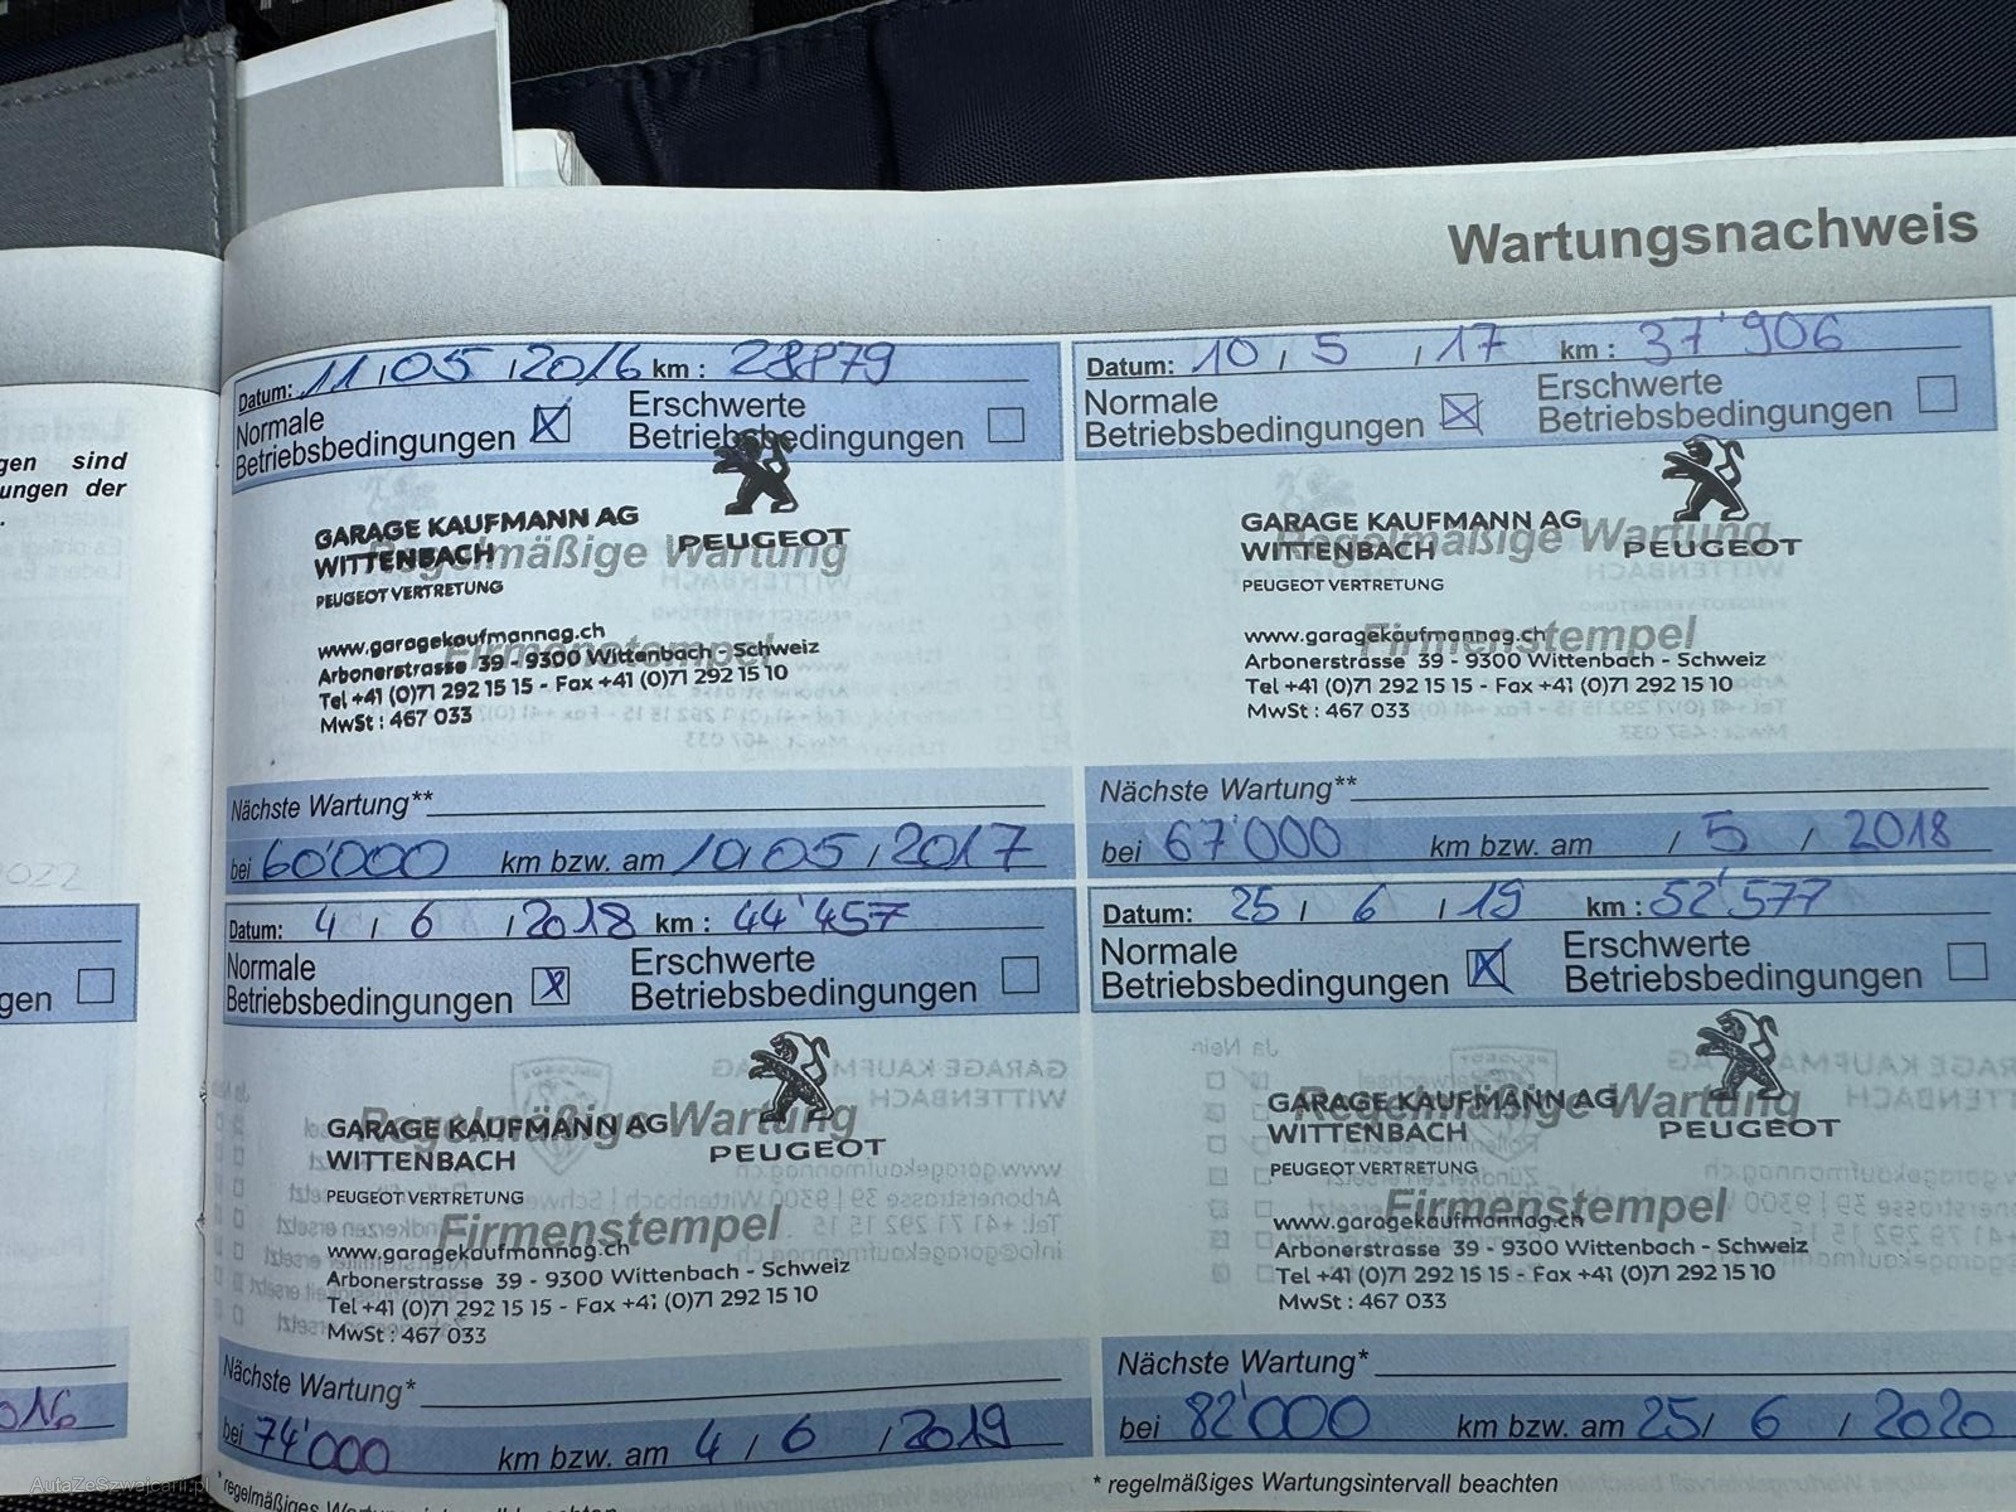 Wartungsnachweis
gen sind
ungen der
.
2022
gen
016
Datum: 11 / 05 / 2016 km : 28879
Normale
Betriebsbedingungen
Erschwerte
Betriebsbedingungen
GARAGE KAUFMANN AG
WITTENBACH
PEUGEOT VERTRETUNG
PEUGEOT
Regelmäßige Wartung
www.garagekaufmannag.ch
Firmenstempel
Arbonerstrasse 39 - 9300 Wittenbach - Schweiz
Tel +41 (0)71 292 15 15 - Fax +41 (0)71 292 15 10
MwSt : 467 033
Nächste Wartung**
bei 60'000 km bzw. am 10 / 05 / 2017
Datum: 10 / 5 / 17 km : 37'906
Normale
Betriebsbedingungen
Erschwerte
Betriebsbedingungen
GARAGE KAUFMANN AG
WITTENBACH
PEUGEOT VERTRETUNG
PEUGEOT
Regelmäßige Wartung
www.garagekaufmannag.ch
Firmenstempel
Arbonerstrasse 39 - 9300 Wittenbach - Schweiz
Tel +41 (0)71 292 15 15 - Fax +41 (0)71 292 15 10
MwSt : 467 033
Nächste Wartung**
bei 67'000 km bzw. am / 5 / 2018
Datum: 4 / 6 / 2018 km : 44'457
Normale
Betriebsbedingungen
Erschwerte
Betriebsbedingungen
Regelmäßige Wartung
GARAGE KAUFMANN AG
WITTENBACH
PEUGEOT
PEUGEOT VERTRETUNG
Firmenstempel
www.garagekaufmannag.ch
Arbonerstrasse 39 - 9300 Wittenbach - Schweiz
Tel +41 (0)71 292 15 15 - Fax +41 (0)71 292 15 10
MwSt : 467 033
Nächste Wartung*
bei 74'000 km bzw. am 4 / 6 / 2019
Datum: 25 / 6 / 19 km : 52'577
Normale
Betriebsbedingungen
Erschwerte
Betriebsbedingungen
Regelmäßige Wartung
GARAGE KAUFMANN AG
WITTENBACH
PEUGEOT
PEUGEOT VERTRETUNG
Firmenstempel
www.garagekaufmannag.ch
Arbonerstrasse 39 - 9300 Wittenbach - Schweiz
Tel +41 (0)71 292 15 15 - Fax +41 (0)71 292 15 10
MwSt : 467 033
Nächste Wartung*
bei 82'000 km bzw. am 25 / 6 / 2020
* regelmäßiges
* regelmäßiges Wartungsintervall beachten
AutaZeSzwajcarii.pl